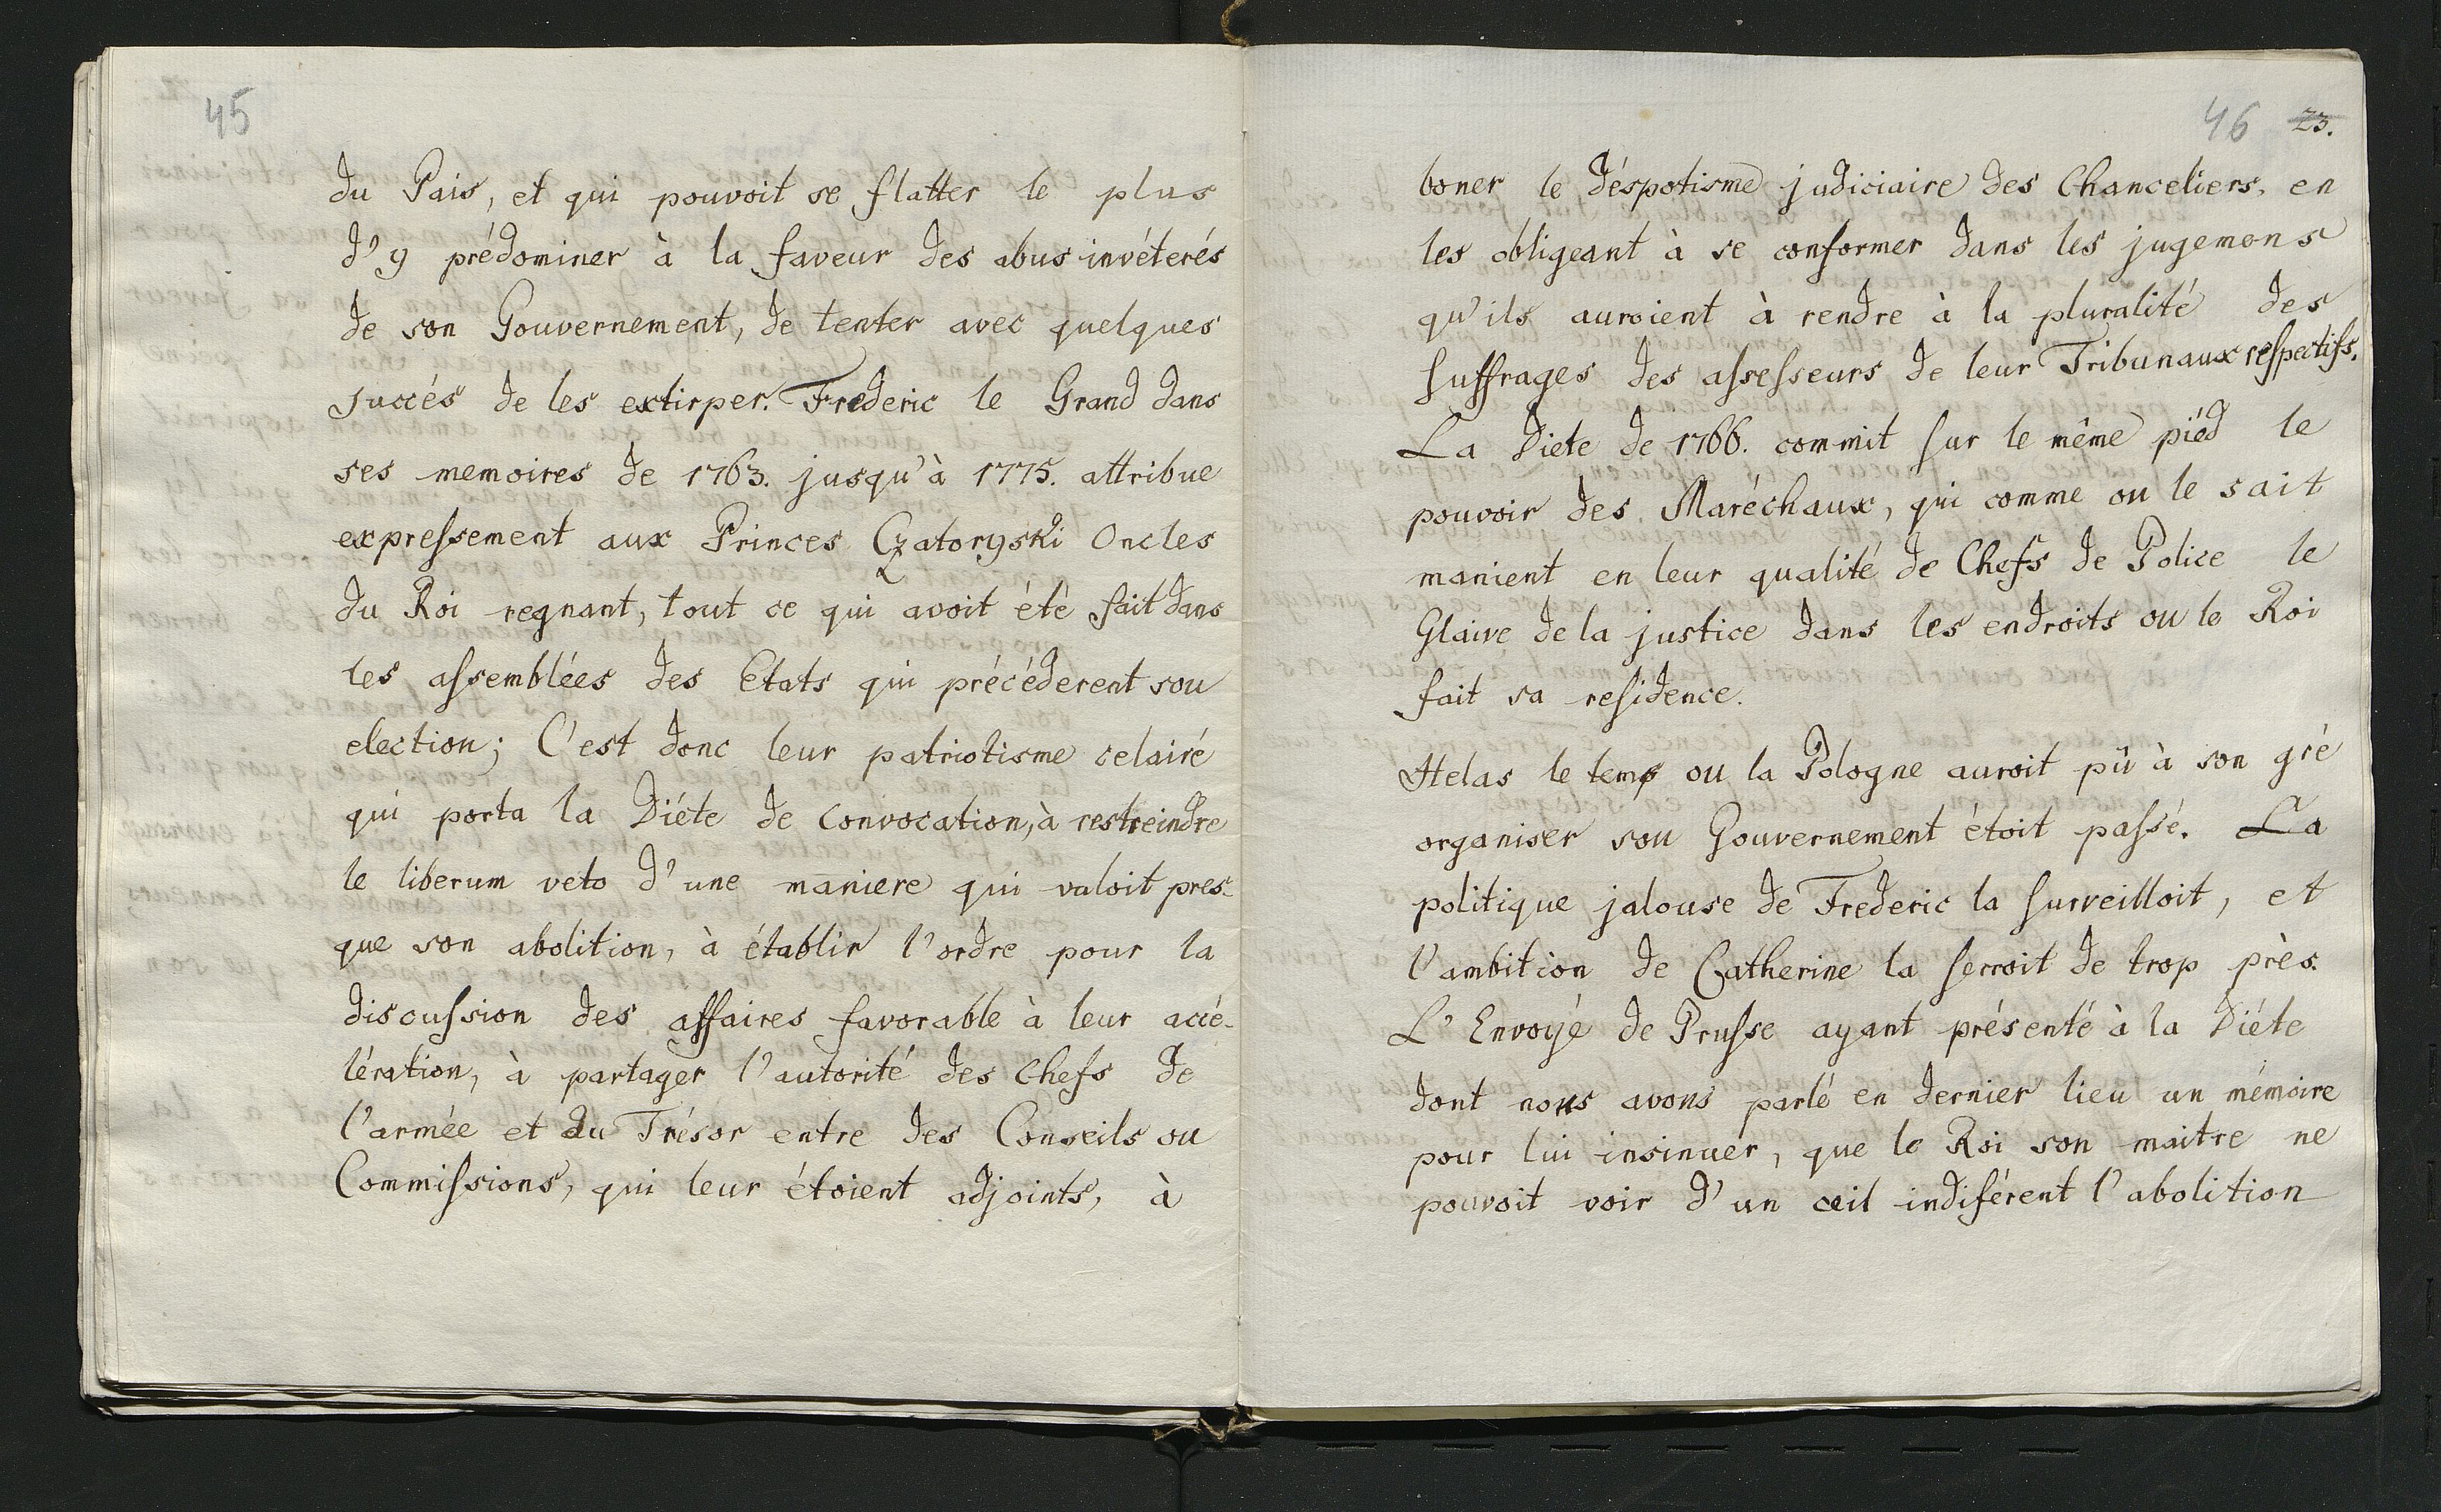 45
du Pais, et qui pouvoit se flatter le plus
d'y prédominer à la faveur des abus invéterés
de son Gouvernement, de tenter avec quelques
succés de les extirper. Frederic le Grand dans
ses memoires de 1763. jusqu'à 1775. attribue
expressement aux Princes Czatoryski Oncles
du Roi regnant, tout ce qui avoit été fait dans
les assemblées des Etats qui précéderent sou
election; C'est donc leur patriotisme celairé
qui porta la Diéte de Convocation, à restreindre
le liberum veto d'une maniere qui valoit pres-
que son abolition, à établir l'ordre pour la
discussion des affaires favorable à leur accé-
lération, à partager l'autorité des chefs de
l'armée et du Trésor entre des Conseils ou
Commissions, qui leur étoient adjoints, à
46 23.
boner le déspotisme judiciaire des Chanceliers, en
les obligeant à se conformer dans les jugemens
qu'ils auroient à rendre à la pluralité des
suffrages des assesseurs de leur Tribunaux respectifs.
La Diete de 1766. commit sur le même piéd le
pouvoir des Maréchaux, qui comme ou le sait
manient en leur qualité de Chefs de Police le
Glaive de la justice dans les endroits ou le Roi
fait sa residence.
Helas le temps ou la Pologne auroit pû à son gré
organiser sou Gouvernement étoit passé. La
politique jalouse de Frederic la surveilloit, et
l'ambition de Catherine la serroit de trop près.
L'Envoyé de Prusse ayant présenté à la Diéte
dont nous avons parlé en dernier lieu un mémoire
pour lui insinuer, que le Roi son maitre ne
pouvoit voir d'un œil indiférent l'abolition